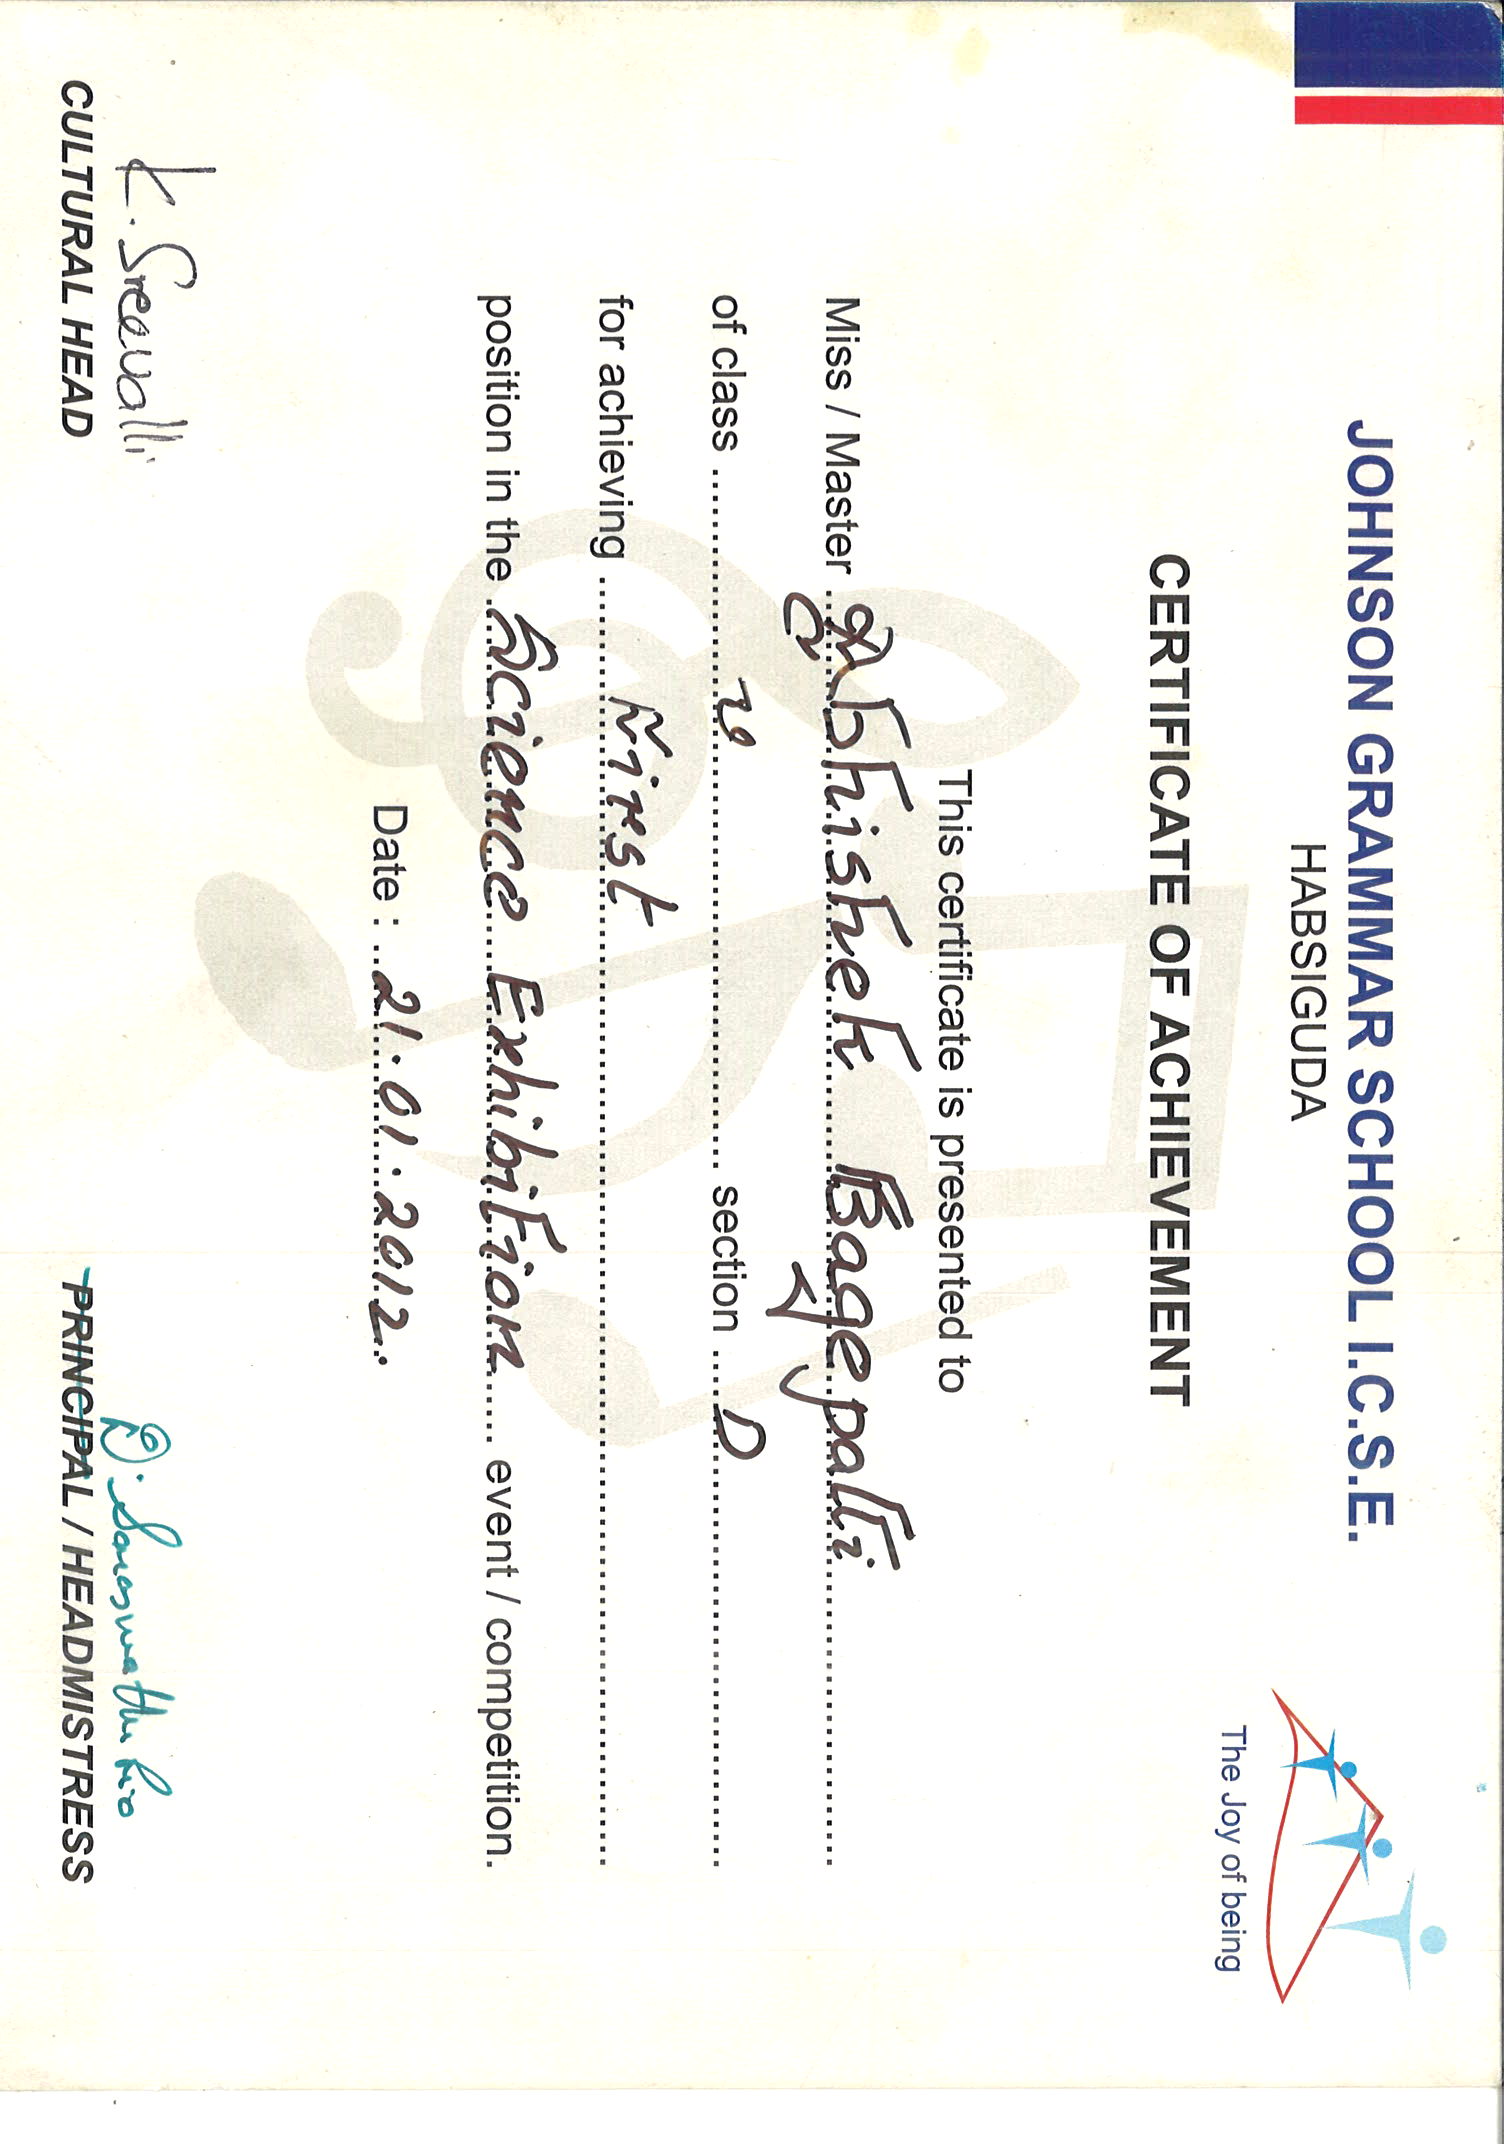 JOHNSON GRAMMAR SCHOOL I.C.S.E.
HABSIGUDA
The Joy of being
CERTIFICATE OF ACHIEVEMENT
This certificate is presented to
Miss / Master Abhishek Bagepalli
of class V section D
for achieving First
position in the Science Exhibition event / competition.
Date : 21.01.2012.
K. Sreevalli
CULTURAL HEAD
D. Saraswathi
PRINCIPAL / HEADMISTRESS